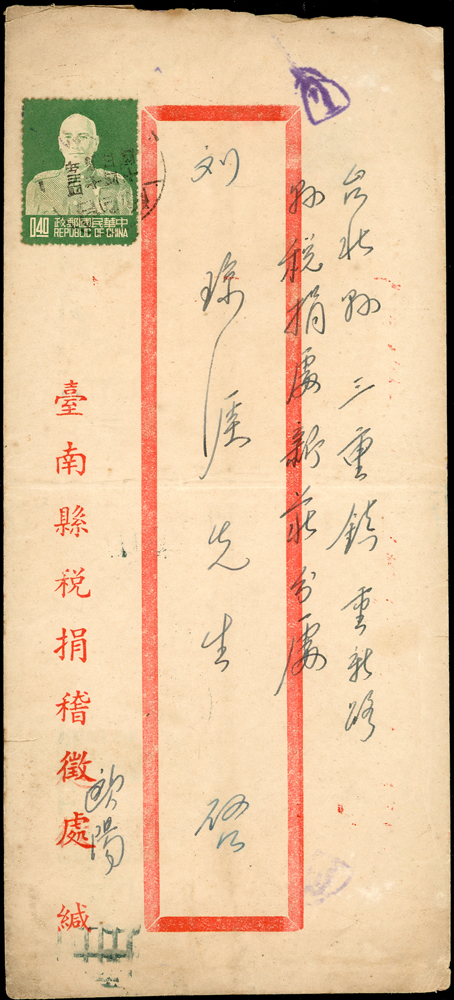 台北縣 三重鎮 重新路
縣稅捐處新莊分處
刘琼涯先生 啓
臺南縣稅捐稽徵處 緘
歐陽
0.40
政郵國民華中
REPUBLIC OF CHINA